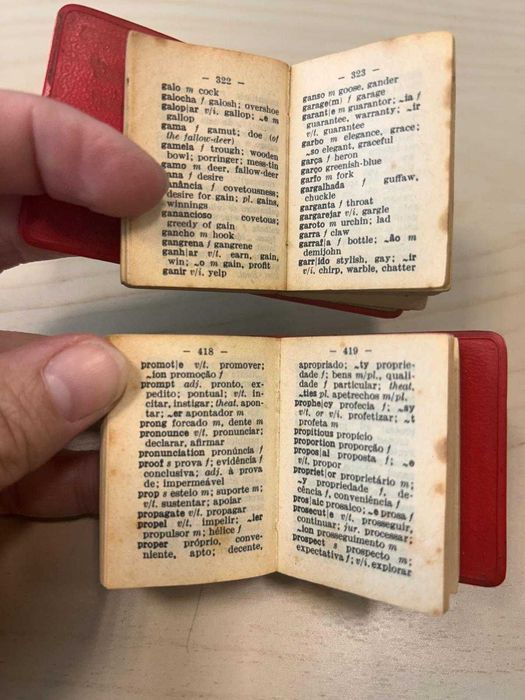 – 322 –
galo m cock
galocha f galosh; overshoe
galop|ar v/i. gallop; ~e m
gallop
gama f gamut; doe (of
the fallow-deer)
gamela f trough; wooden
bowl; porringer; mess-tin
gamo m deer, fallow-deer
ana f desire
anância f covetousness;
desire for gain; pl. gains,
winnings
ganancioso covetous;
greedy of gain
gancho m hook
gangrena f gangrene
ganh|ar v/t. earn, gain,
win; ~o m gain, profit
ganir v/i. yelp
– 323 –
ganso m goose, gander
garage(m) f garage
garant|e m guarantor; ~ia f
guarantee, warranty; ~ir
v/t. guarantee
garbo m elegance, grace;
~so elegant, graceful
garça f heron
garço greenish-blue
garfo m fork
gargalhada f guffaw,
chuckle
garganta f throat
gargarejar v/i. gargle
garoto m urchin; lad
garra f claw
garraf|a f bottle; ~ão m
demijohn
garr|ido stylish, gay; ~ir
v/i. chirp, warble, chatter
– 418 –
promot|e v/t. promover;
~ion promoção f
prompt adj. pronto, ex-
pedito; pontual; v/t. in-
citar, instigar; theat. apon-
tar; ~er apontador m
prong forcado m, dente m
pronounce v/t. pronunciar;
declarar, afirmar
pronunciation pronúncia f
proof s prova f; evidência f
conclusiva; adj. à prova
de; impermeável
prop s esteio m; suporte m;
v/t. sustentar; apoiar
propagate v/t. propagar
propel v/t. impelir; ~ler
propulsor m; hélice f
proper próprio, conve-
niente, apto; decente,
– 419 –
apropriado; ~ty proprie-
dade f; bens m/pl., quali-
dade f particular; theat.
~ties pl. apetrechos m/pl.
prophe|cy profecia f; ~sy
v/t. or v/i. profetizar; ~t
profeta m
propitious propício
proportion proporção f
propos|al proposta f; ~e
v/t. propor
propriet|or proprietário m;
~y propriedade f, de-
cência f, conveniência f
pros|aic prosaico; ~e prosa f
prosecut|e v/t. prosseguir,
continuar; jur. processar;
~ion prosseguimento m
prospect s prospecto m;
expectativa f; v/i. explorar